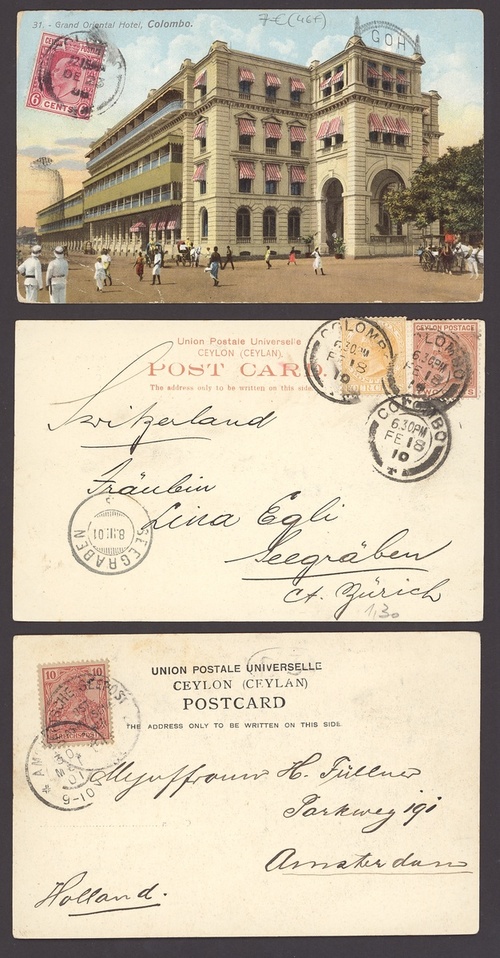 31. - Grand Oriental Hotel, Colombo.
7€ (46f)
GOH
6 CENTS 6
Union Postale Universelle
CEYLON (CEYLAN).
POST CARD.
The address only to be written on this side.
CEYLON POSTAGE
COLOMBO
6.30PM
FE 18
COLOMBO
6.30PM
FE 18
10
COLOMBO
6.30PM
FE 18
10
Switzerland
Fräulein
Lina Egli
Seegräben
Ct. Zürich
1,30
SEEGRÄBEN
8.III.01
UNION POSTALE UNIVERSELLE
CEYLON (CEYLAN)
POSTCARD
THE ADDRESS ONLY TO BE WRITTEN ON THIS SIDE.
10 10
REICHSPOST
H. Füllner
Parkweg 191
Amsterdam
Holland.